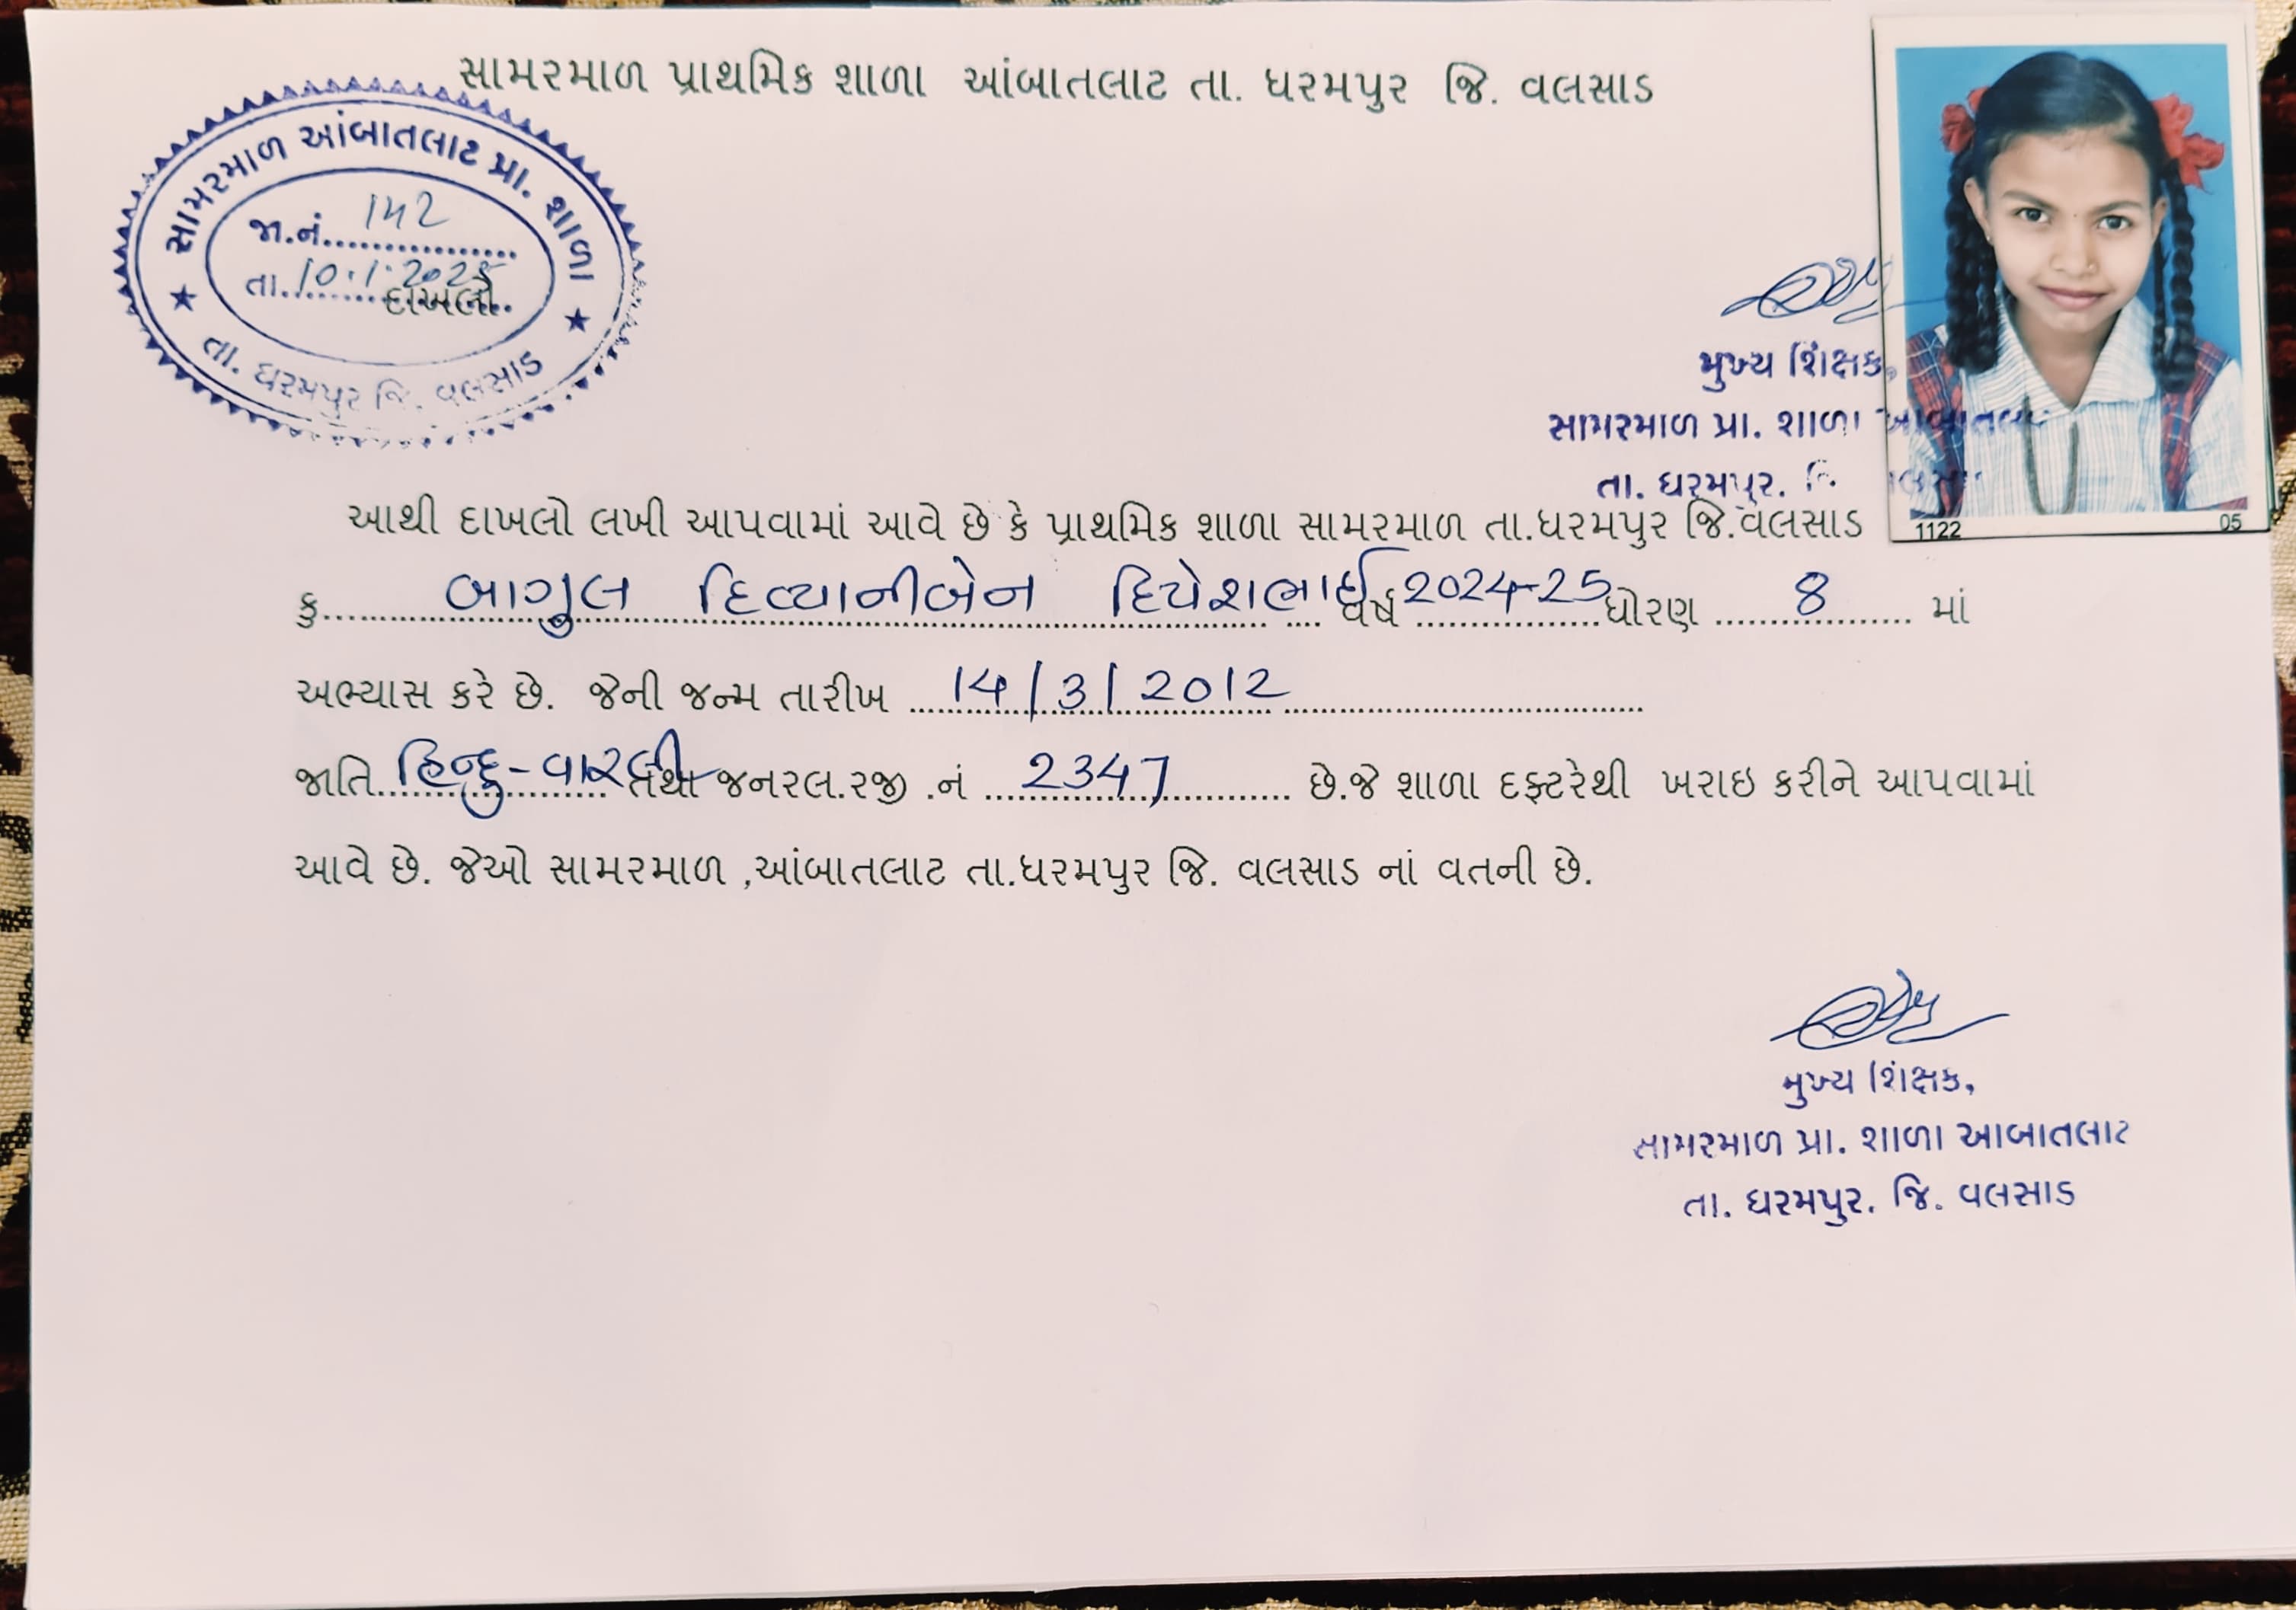 સામરમાળ પ્રાથમિક શાળા આંબાતલાટ તા. ધરમપુર જિ. વલસાડ
સામરમાળ આંબાતલાટ પ્રા. શાળા
જા.નં. 142
તા. 10.1.2025
દાખલો.
તા. ધરમપુર જિ. વલસાડ
મુખ્ય શિક્ષક,
સામરમાળ પ્રા. શાળા આંબાતલાટ
તા. ધરમપુર. જિ. વલસાડ
1122 05
આથી દાખલો લખી આપવામાં આવે છે કે પ્રાથમિક શાળા સામરમાળ તા.ધરમપુર જિ.વલસાડ
કુ. બાગુલ દિવ્યાનીબેન દિપેશભાઈ વર્ષ 2024-25 ધોરણ 8 માં
અભ્યાસ કરે છે. જેની જન્મ તારીખ 14/3/2012
જાતિ હિન્દુ-વારલી તથા જનરલ.રજી .નં 2347 છે.જે શાળા દફ્ટરેથી ખરાઇ કરીને આપવામાં
આવે છે. જેઓ સામરમાળ ,આંબાતલાટ તા.ધરમપુર જિ. વલસાડ નાં વતની છે.
મુખ્ય શિક્ષક,
સામરમાળ પ્રા. શાળા આંબાતલાટ
તા. ધરમપુર. જિ. વલસાડ